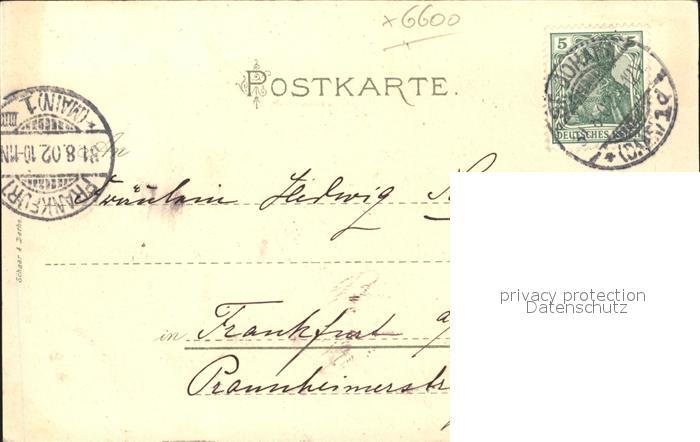 x6600
POSTKARTE.
5 5
DEUTSCHES REICH
FRANKFURT (MAIN) 1
31.8.02 10-11N
An
Fräulein Hedwig
Schaar & Dathe
in Frankfurt a/
Praunheimerstr
privacy protection
Datenschutz